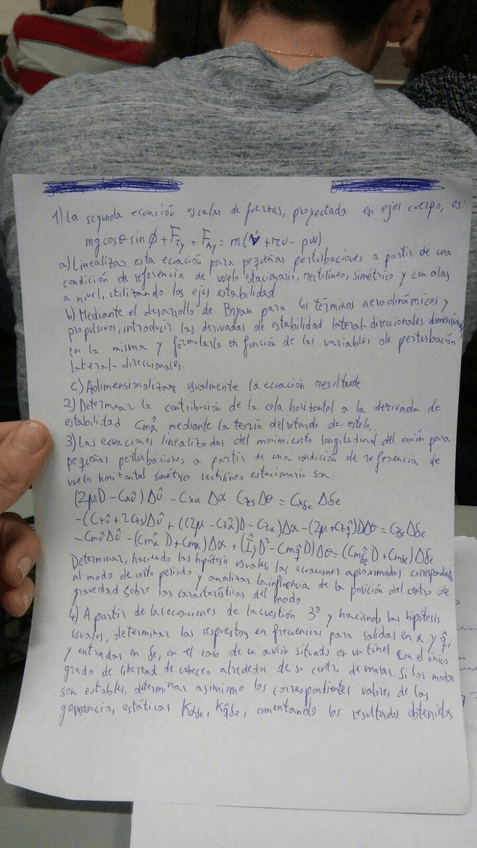 1) La segunda ecuación escalar de fuerzas, proyectada en ejes cuerpo, es:
mg cosθ sin ϕ + F_Ty + F_Ay = m(v̇ + ru - pw)
a) Linealizar esta ecuación para pequeñas perturbaciones a partir de una
condición de referencia de vuelo estacionario, rectilíneo, simétrico y con alas
a nivel, utilizando los ejes estabilidad
b) Mediante el desarrollo de Bryan para los términos aerodinámicos y
propulsivos, introducir las derivadas de estabilidad lateral-direccionales dimensionales
en la misma y formularla en función de las variables de perturbación
lateral-direccionales.
c) Adimensionalizar igualmente la ecuación resultante
2) Determinar la contribución de la cola horizontal a la derivada de
estabilidad mediante la teoría del retardo de estela.
3) Las ecuaciones linealizadas del movimiento longitudinal del avión para
pequeñas perturbaciones a partir de una condición de referencia de
vuelo horizontal simétrico rectilíneo estacionario son
(2μD - Cxû)Δû - Cxα Δα Czs Δθ = Cxδe Δδe
-(Czû + 2Czs)Δû + ((2μ - Czα̂)D - Czα)Δα - (2μ + Czq̂)DΔθ = Czδe Δδe
-Cmû Δû - (Cmα̂ D + Cmα)Δα + (Îy D² - Cmq̂ D)Δθ = (Cmδ̂e D + Cmδe)Δδe
Determinar, haciendo las hipótesis usuales las ecuaciones aproximadas correspondientes
al modo de corto periodo y analizar la influencia de la posición del centro de
gravedad sobre las características del modo
4) A partir de las ecuaciones de la cuestión 3ª y haciendo las hipótesis
usuales, determinar las respuestas en frecuencias para salidas en α y q̂,
y entradas en δe, en el caso de un avión situado en un túnel con el único
grado de libertad de cabeceo alrededor de su centro de masas. Si los modos
son estables, determinar asimismo los correspondientes valores de las
ganancias estáticas Kαδe, Kq̂δe, comentando los resultados obtenidos